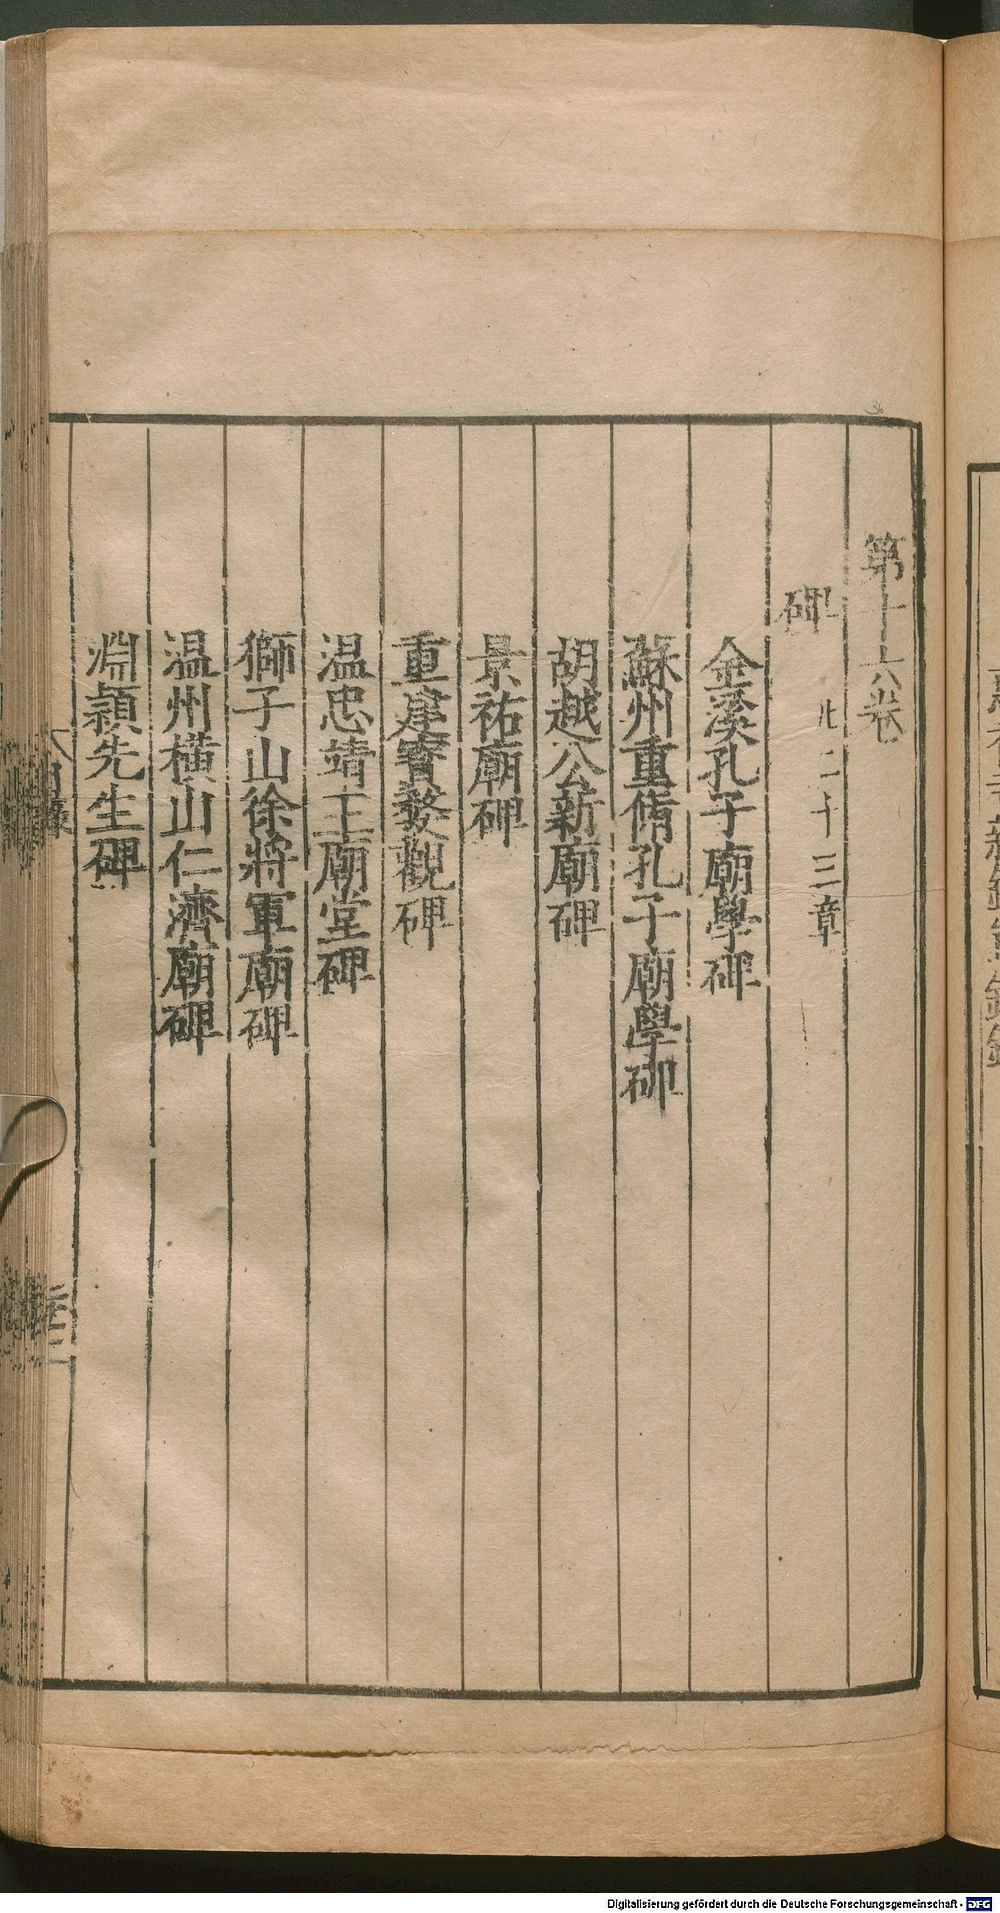 第十六卷
碑 凡二十三章
金溪孔子廟學碑
蘇州重脩孔子廟學碑
胡越公新廟碑
景祐廟碑
重建寳婺觀碑
温忠靖王廟堂碑
獅子山徐將軍廟碑
温州橫山仁濟廟碑
淵穎先生碑
目錄
Digitalisierung gefördert durch die Deutsche Forschungsgemeinschaft - DFG